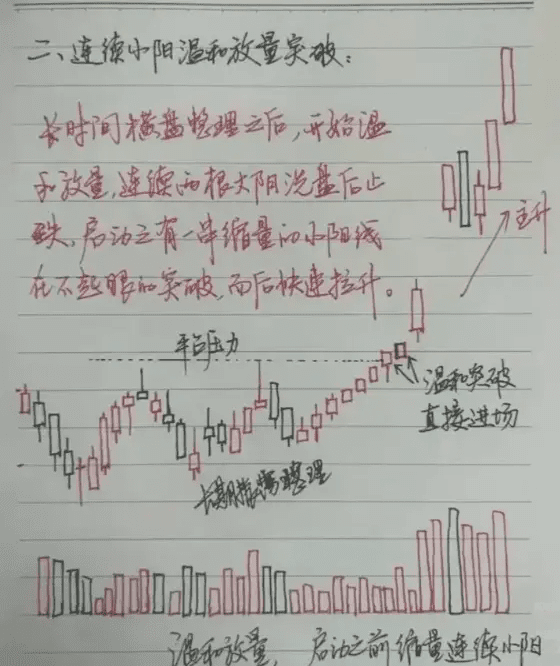 二、连续小阳温和放量突破：
长时间横盘整理之后，开始温
和放量，连续两根大阴洗盘后止
跌，启动之有一串缩量的小阳线
在不起眼的突破，而后快速拉升。
主升
平台压力
温和突破
直接进场
长期横盘整理
温和放量，启动之前缩量连续小阳